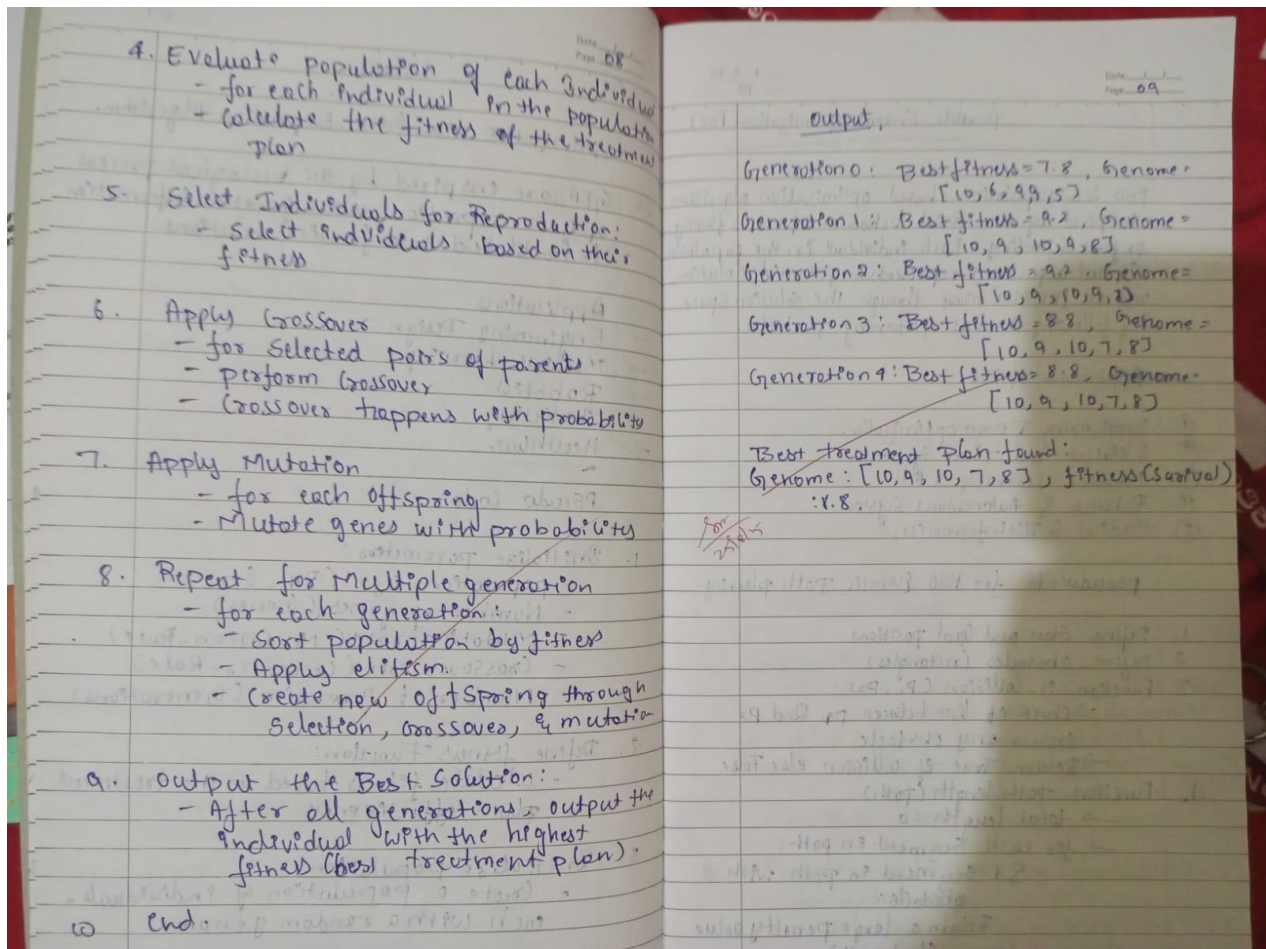 Date
Page 08
4. Evaluate population of each Individual
- for each individual in the population
- Calculate the fitness of the treatment
plan
5. Select Individuals for Reproduction:
- Select individuals based on their
fitness
6. Apply Crossover
- for selected pairs of parents
- perform Crossover
- Crossover happens with probability
7. Apply Mutation
- for each offspring
- Mutate genes with probability
8. Repeat for Multiple generation
- for each generation:
- Sort population by fitness
- Apply elitism.
- Create new offspring through
Selection, crossover, & mutation
9. Output the Best Solution:
- After all generations, output the
individual with the highest
fitness (best treatment plan).
10 End.
Date
Page 09
output,
Generation 0: Best fitness = 7.8, Genome =
[10, 6, 9, 9, 5]
Generation 1: Best fitness = 9.2, Genome =
[10, 9, 10, 9, 8]
Generation 2: Best fitness = 9.2, Genome =
[10, 9, 10, 9, 8]
Generation 3: Best fitness = 8.8, Genome =
[10, 9, 10, 7, 8]
Generation 4: Best fitness = 8.8, Genome =
[10, 9, 10, 7, 8]
Best treatment plan found:
Genome: [10, 9, 10, 7, 8], fitness (Sarival)
: 8.8.